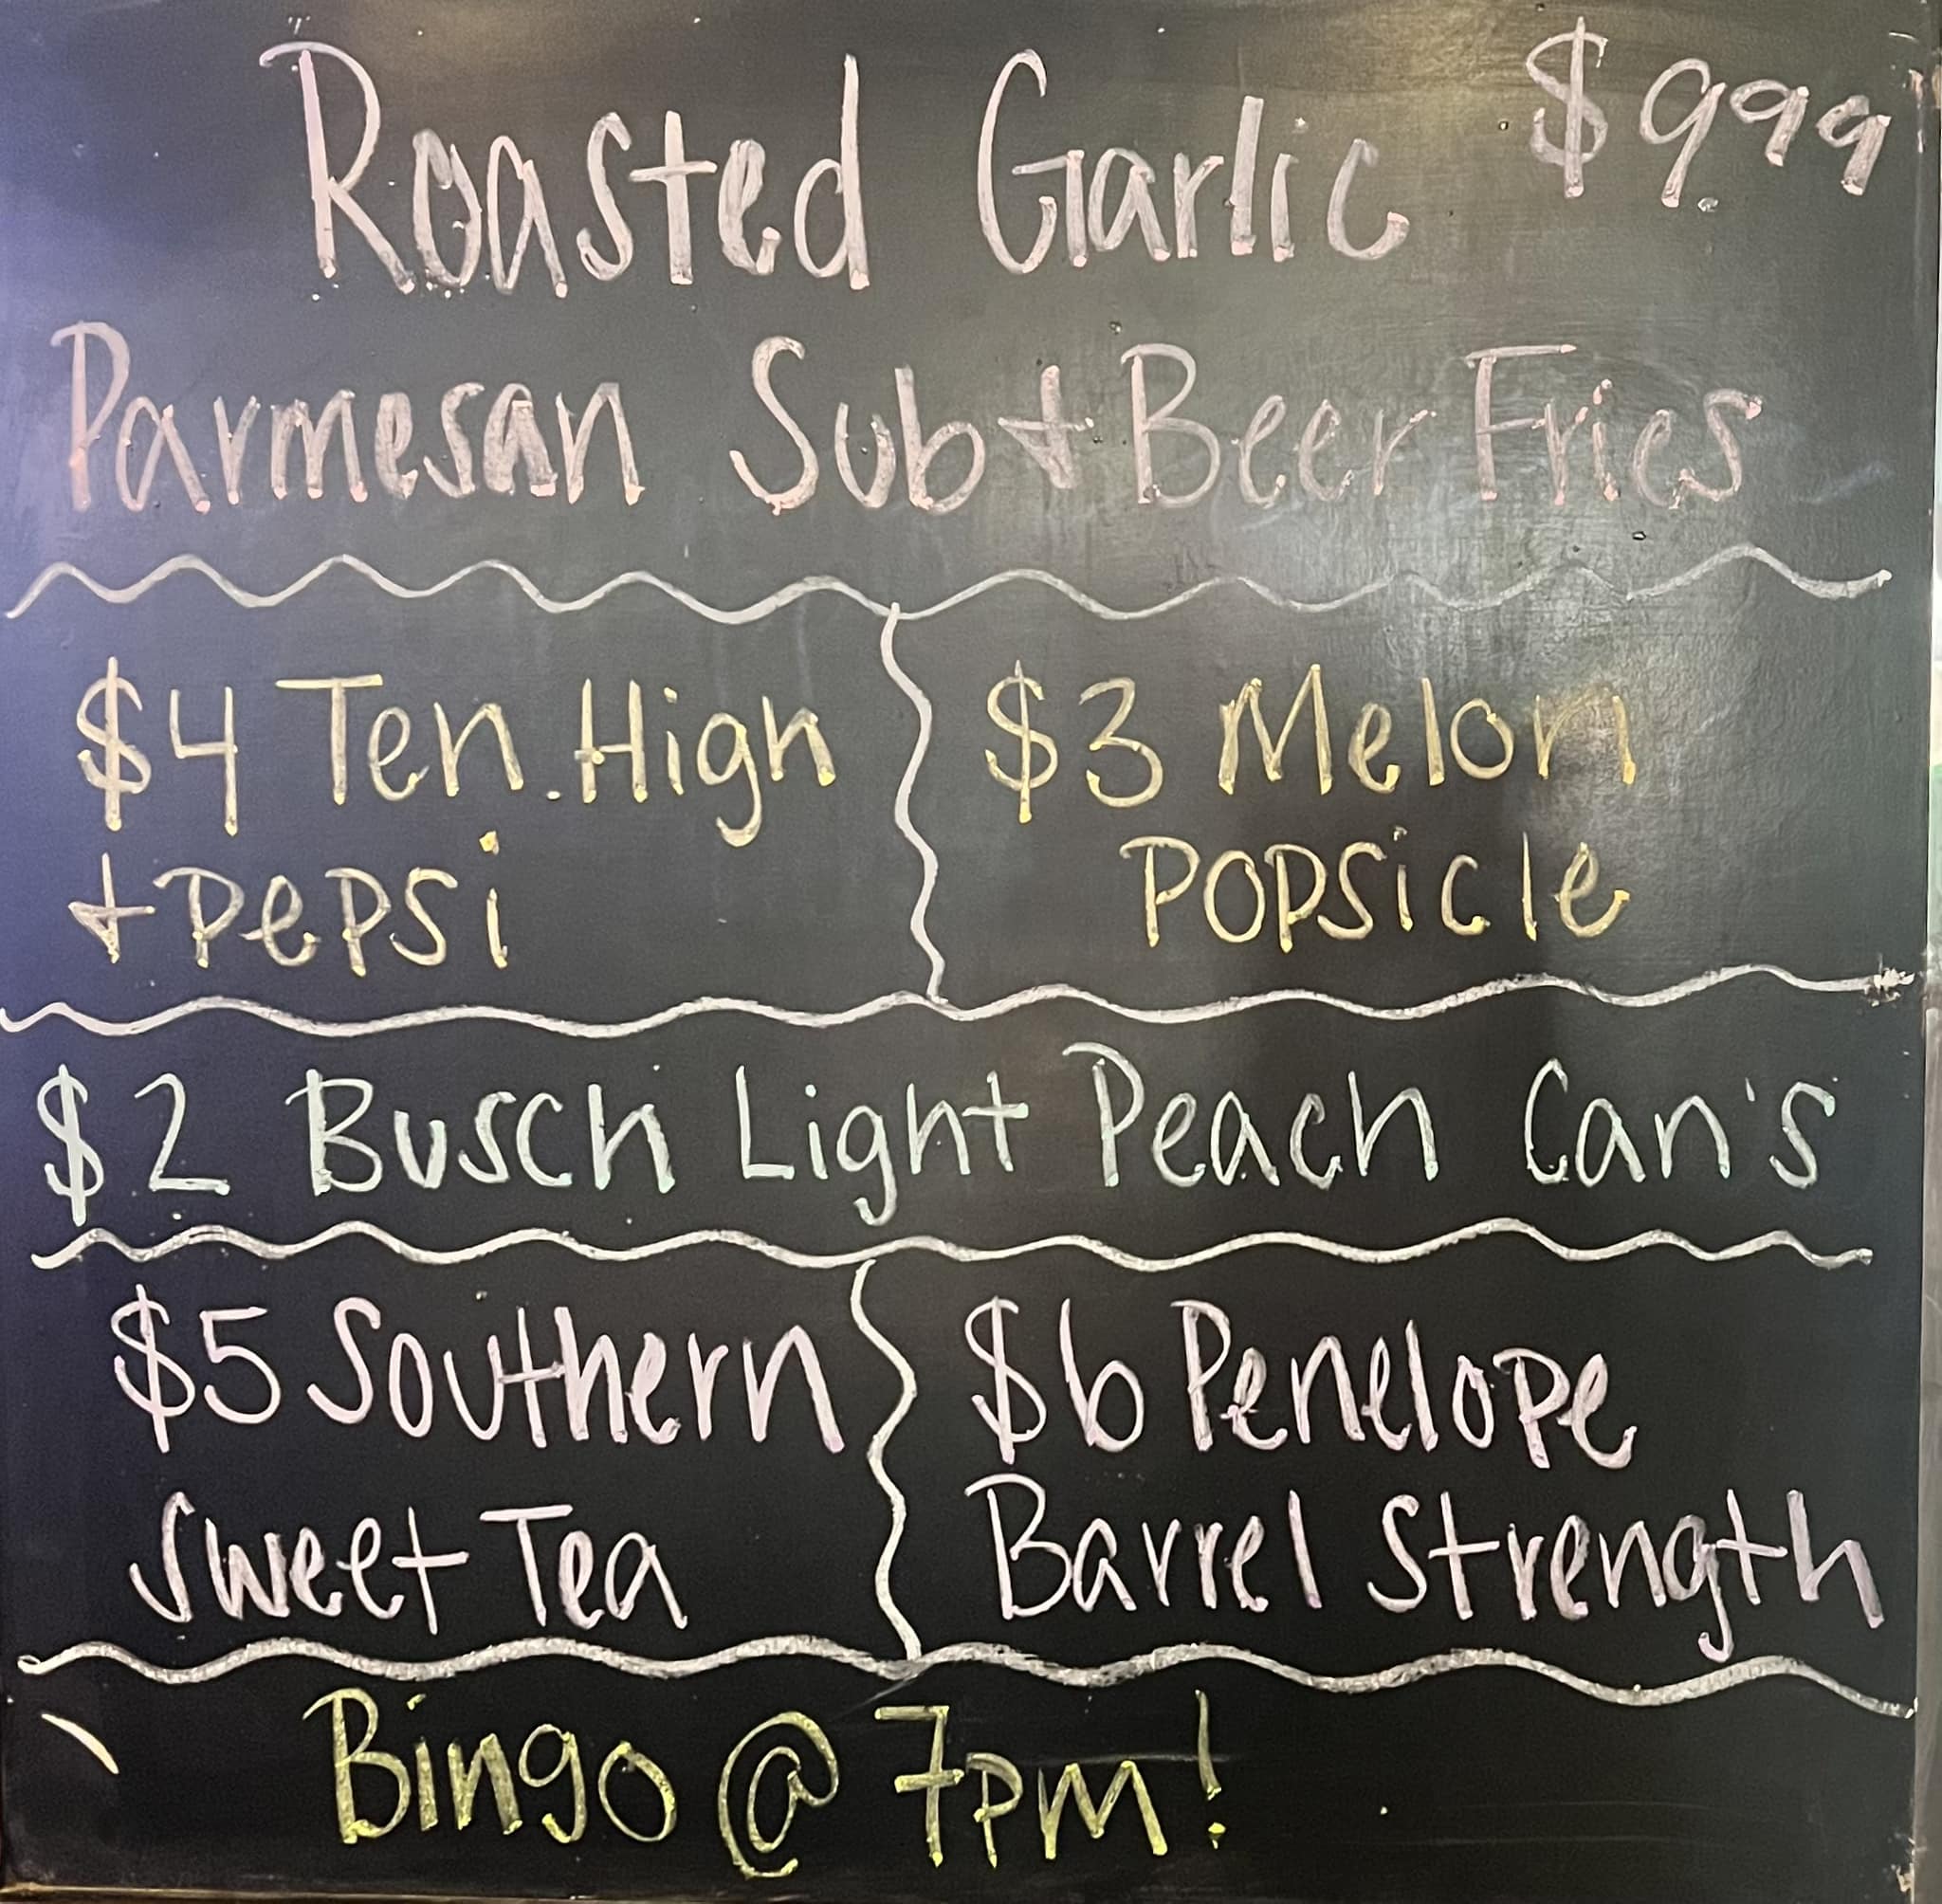 Roasted Garlic $999
Parmesan Sub + Beer Fries
$4 Ten High
+ Pepsi
$3 Melon
Popsicle
$2 Busch Light Peach Can's
$5 Southern
Sweet Tea
$6 Penelope
Barrel Strength
Bingo @ 7pm!